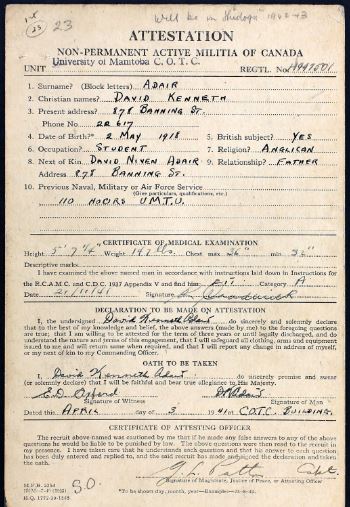 1st
25
23
Will be in Theology 1942-43
ATTESTATION
NON-PERMANENT ACTIVE MILITIA OF CANADA
UNIT University of Manitoba C. O. T. C. REGTL. No.
1. Surname? (Block letters) ADAIR
2. Christian names? DAVID KENNETH
3. Present address? 878 BANNING ST.
Phone No. 22 617
4. Date of Birth?* 2 MAY 1918 5. British subject? YES
6. Occupation? STUDENT 7. Religion? ANGLICAN
8. Next of Kin DAVID NIVEN ADAIR 9. Relationship? FATHER
Address 878 BANNING ST.
10. Previous Naval, Military or Air Force Service
(Give particulars, qualifications, etc.)
110 HOURS U.M.T.U.
CERTIFICATE OF MEDICAL EXAMINATION
Height 5' 7¼" Weight 147 lbs. Chest max 36" min. 33"
Descriptive marks
I have examined the above named man in accordance with instructions laid down in Instructions for
the R.C.A.M.C. and C.D.C. 1937 Appendix V and find him: FIT Category A
Date 21/11/41 Signature
DECLARATION TO BE MADE ON ATTESTATION
I, the undersigned David Kenneth Adair, do solemnly and sincerely declare
that to the best of my knowledge and belief, the above answers (made by me) to the foregoing questions
are true; that I am willing to be attested for the term of three years or until legally discharged, and do
understand the nature and terms of this engagement, that I will safeguard all clothing, arms and equipment
issued to me and will return same when required, and that I will report any change in address of myself,
or my next of kin to my Commanding Officer.
OATH TO BE TAKEN
I David Kenneth Adair do sincerely promise and swear
(or solemnly declare) that I will be faithful and bear true allegiance to His Majesty.
E.D. Oxford DK Adair
Signature of Witness Signature of Man
Dated this APRIL day of 3 1941 at C.O.T.C. BUILDING.
CERTIFICATE OF ATTESTING OFFICER
The recruit above named was cautioned by me that if he made any false answers to any of the above
questions he would be liable to be punished by law. The above questions were then read to the recruit in
my presence. I have taken care that he understands each question and that his answer to each question
has been duly entered as replied to, and the said recruit has made and signed the declaration and taken
the oath.
Capt.
Signature of Magistrate, Justice of Peace, or Attesting Officer
*To be shown day, month, year—
M.F.B.
H.Q. 1772-39-1568
S.O.